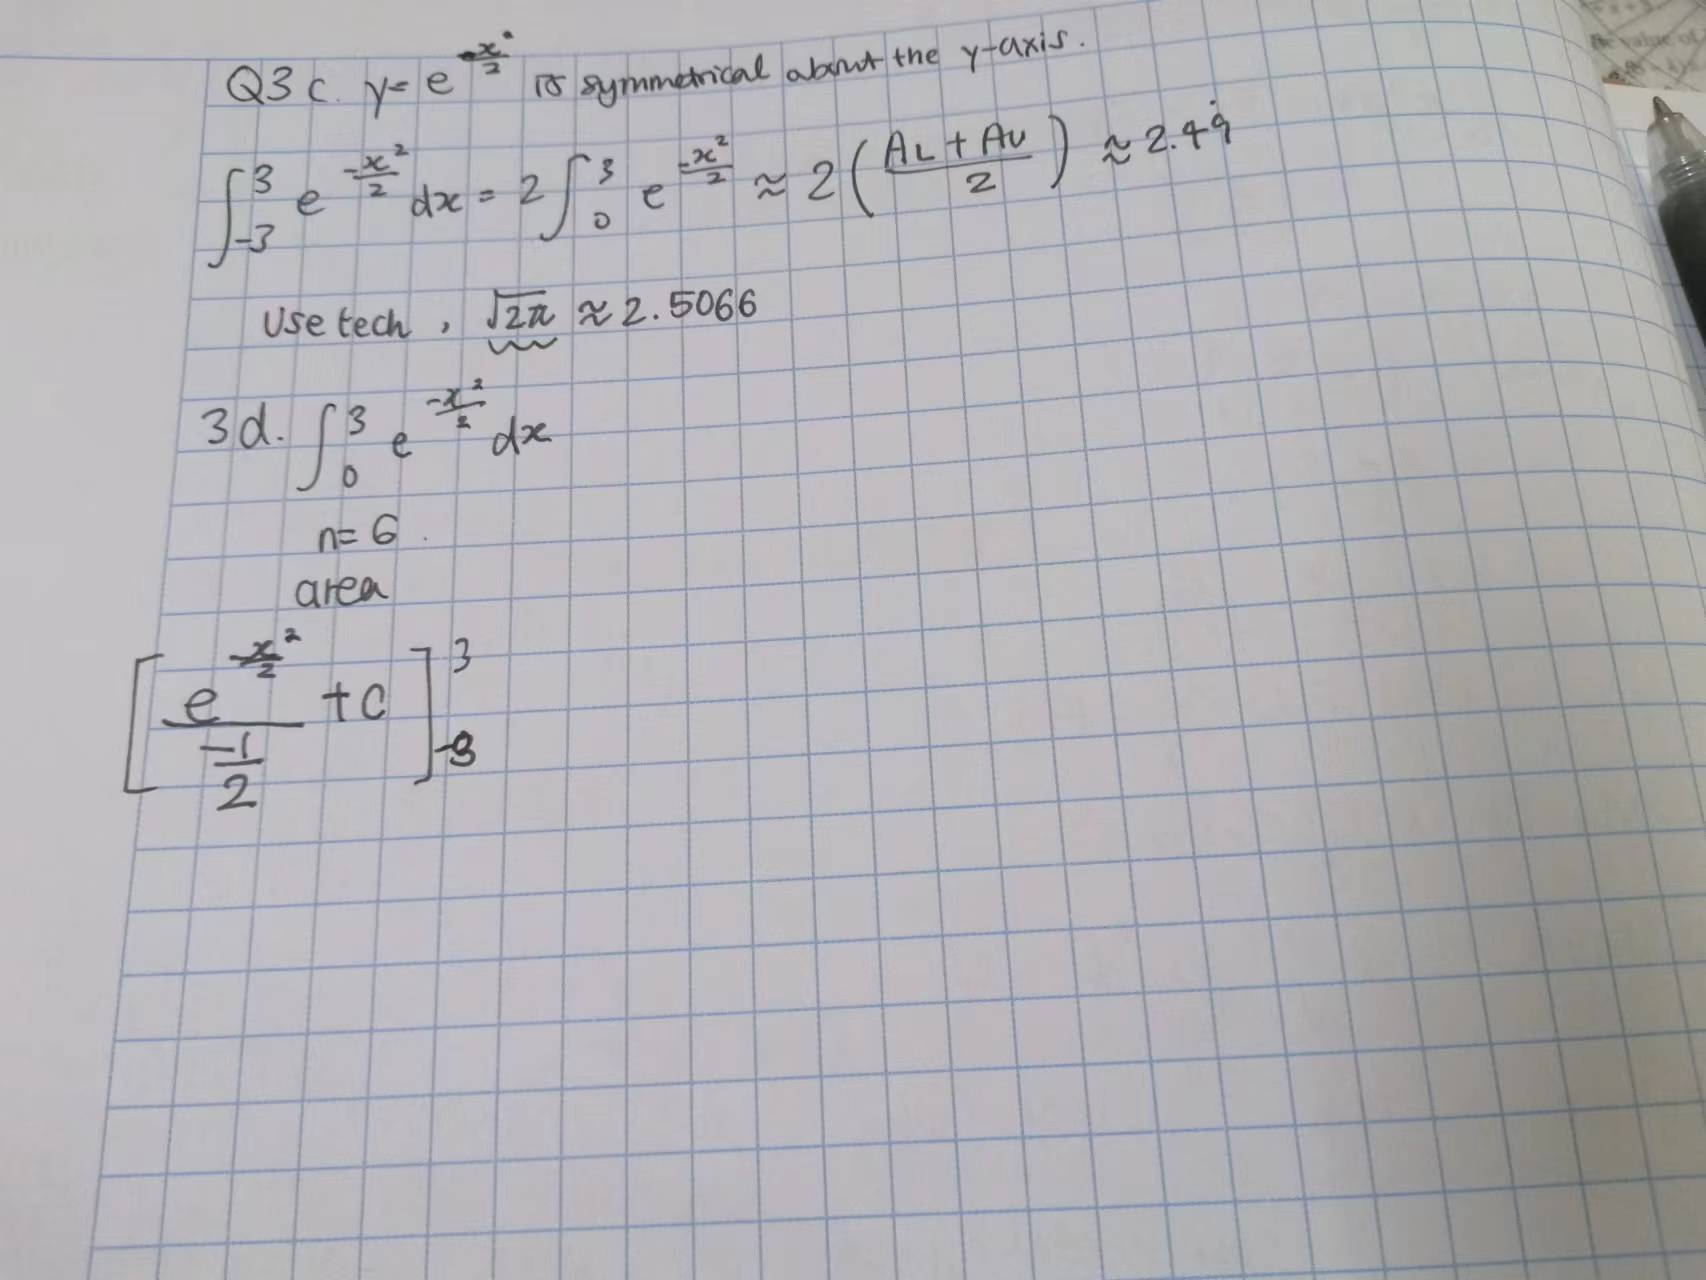 Q3 c. y = e^(-x²/2) is symmetrical about the y-axis.
∫₋₃³ e^(-x²/2) dx = 2∫₀³ e^(-x²/2) ≈ 2((AL + AU)/2) ≈ 2.49̇
Use tech, √2π ≈ 2.5066
3d. ∫₀³ e^(-x²/2) dx
n = 6.
area
[e^(-x²/2)/(-1/2) + c]₋₃³